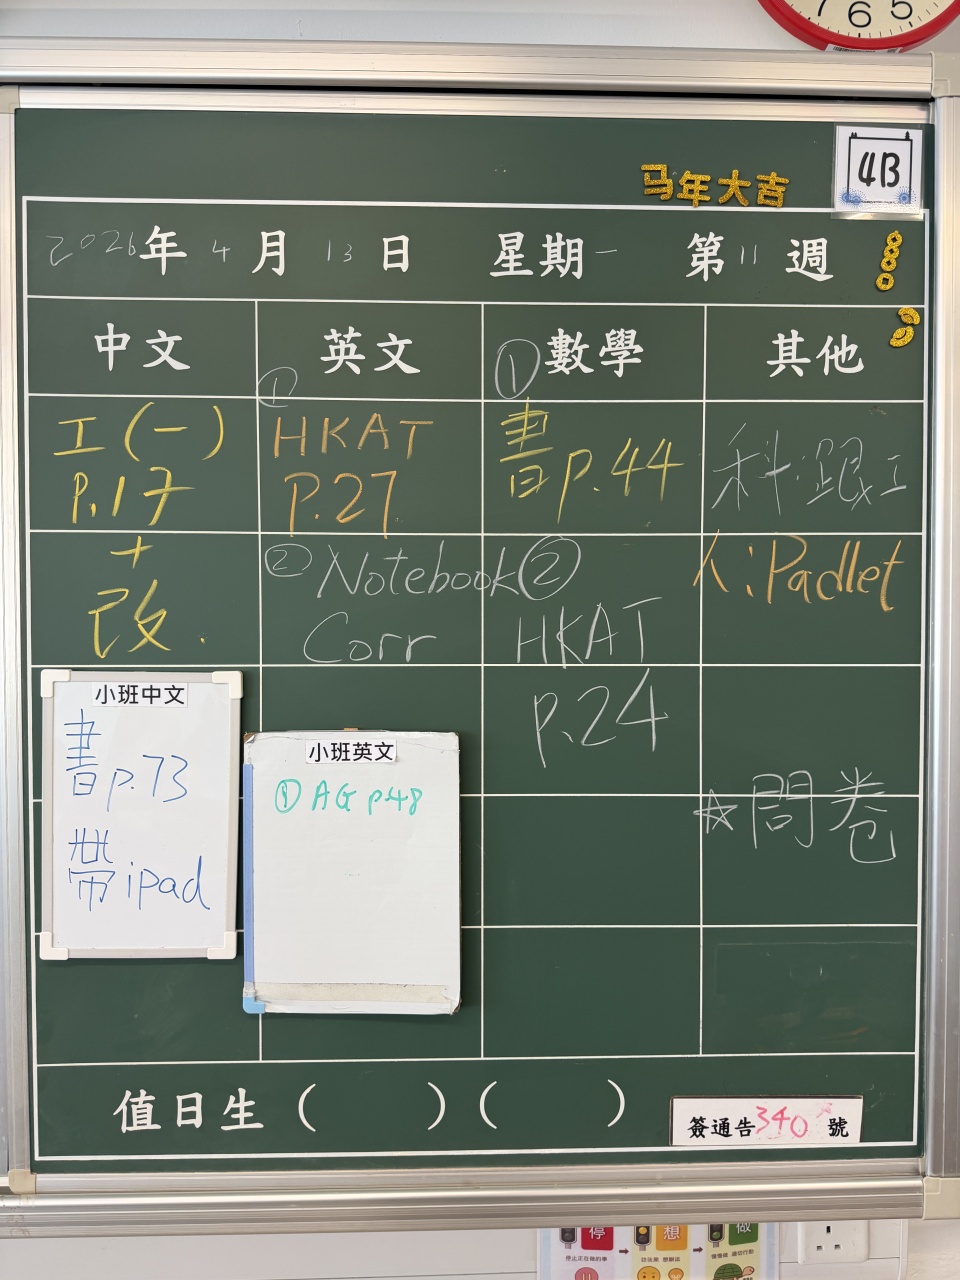 7 6 5
4B
马年大吉
2026年4月13日 星期一 第11週
中文 英文 ①數學 其他
工(一)
P.17
+
改.
① HKAT
P.27
② Notebook
Corr
書p.44
②
HKAT
p.24
科:跟工
人:Padlet
☆問卷
小班中文
書p.73
帶ipad
小班英文
① AG p.48
值日生( )( )
簽通告340號
停
想
做